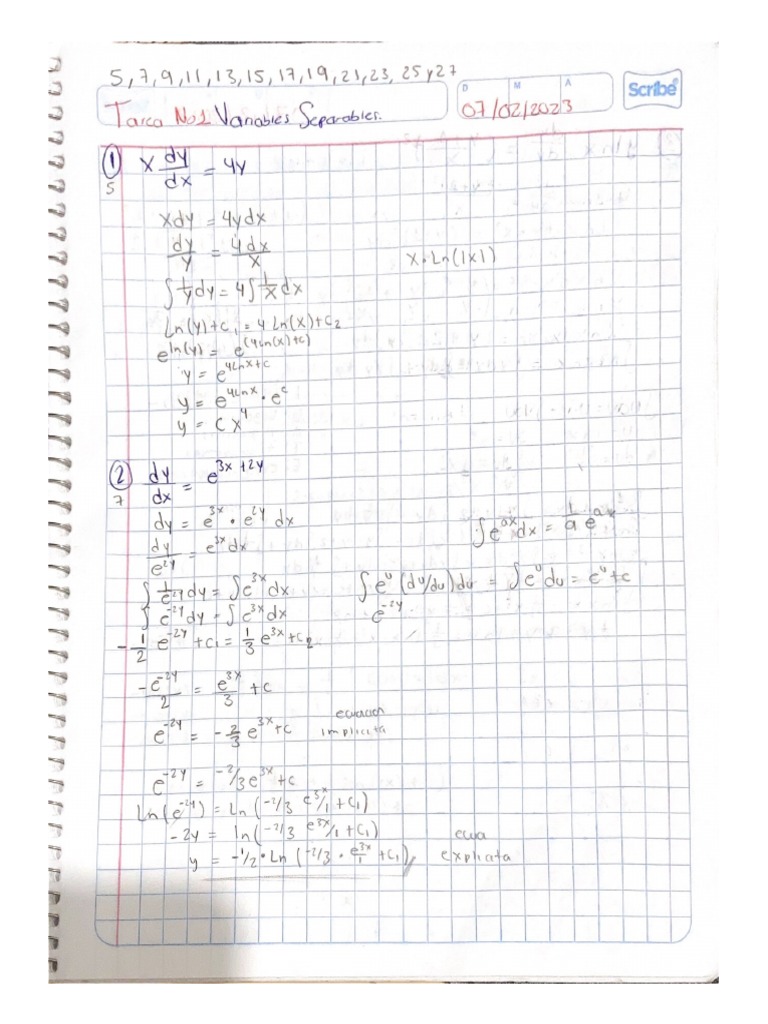 5, 7, 9, 11, 13, 15, 17, 19, 21, 23, 25 y 27
D M A
Scribe
Tarea No1 Variables Separables.
07/02/2023
① x dy/dx = 4y
5
xdy = 4ydx
dy/y = 4dx/x
x·Ln(|x|)
∫ 1/y dy = 4∫ 1/x dx
Ln(y)+c₁ = 4 Ln(x)+c₂
e^ln(y) = e^(4Ln(x)+c)
y = e^4Lnx+c
y = e^4Lnx · e^c
y = C x^4
② dy/dx = e^3x+2y
7
dy = e^3x · e^2y dx
∫e^ax dx = 1/a e^ax
dy/e^2y = e^3x dx
∫ 1/e^2y dy = ∫e^3x dx
∫e^u (du/du) du = ∫e^u du = e^u + c
∫ e^-2y dy = ∫ e^3x dx
e^-2y
-1/2 e^-2y + c₁ = 1/3 e^3x + c₂
-e^-2y/2 = e^3x/3 + c
e^-2y = -2/3 e^3x + c
ecuacion
implicita
e^-2y = -2/3 e^3x + c
Ln(e^-2y) = Ln(-2/3 e^3x/1 + c₁)
-2y = ln(-2/3 e^3x/1 + c₁)
y = -1/2 · Ln (-2/3 · e^3x/1 + c₁)
ecua
explicita